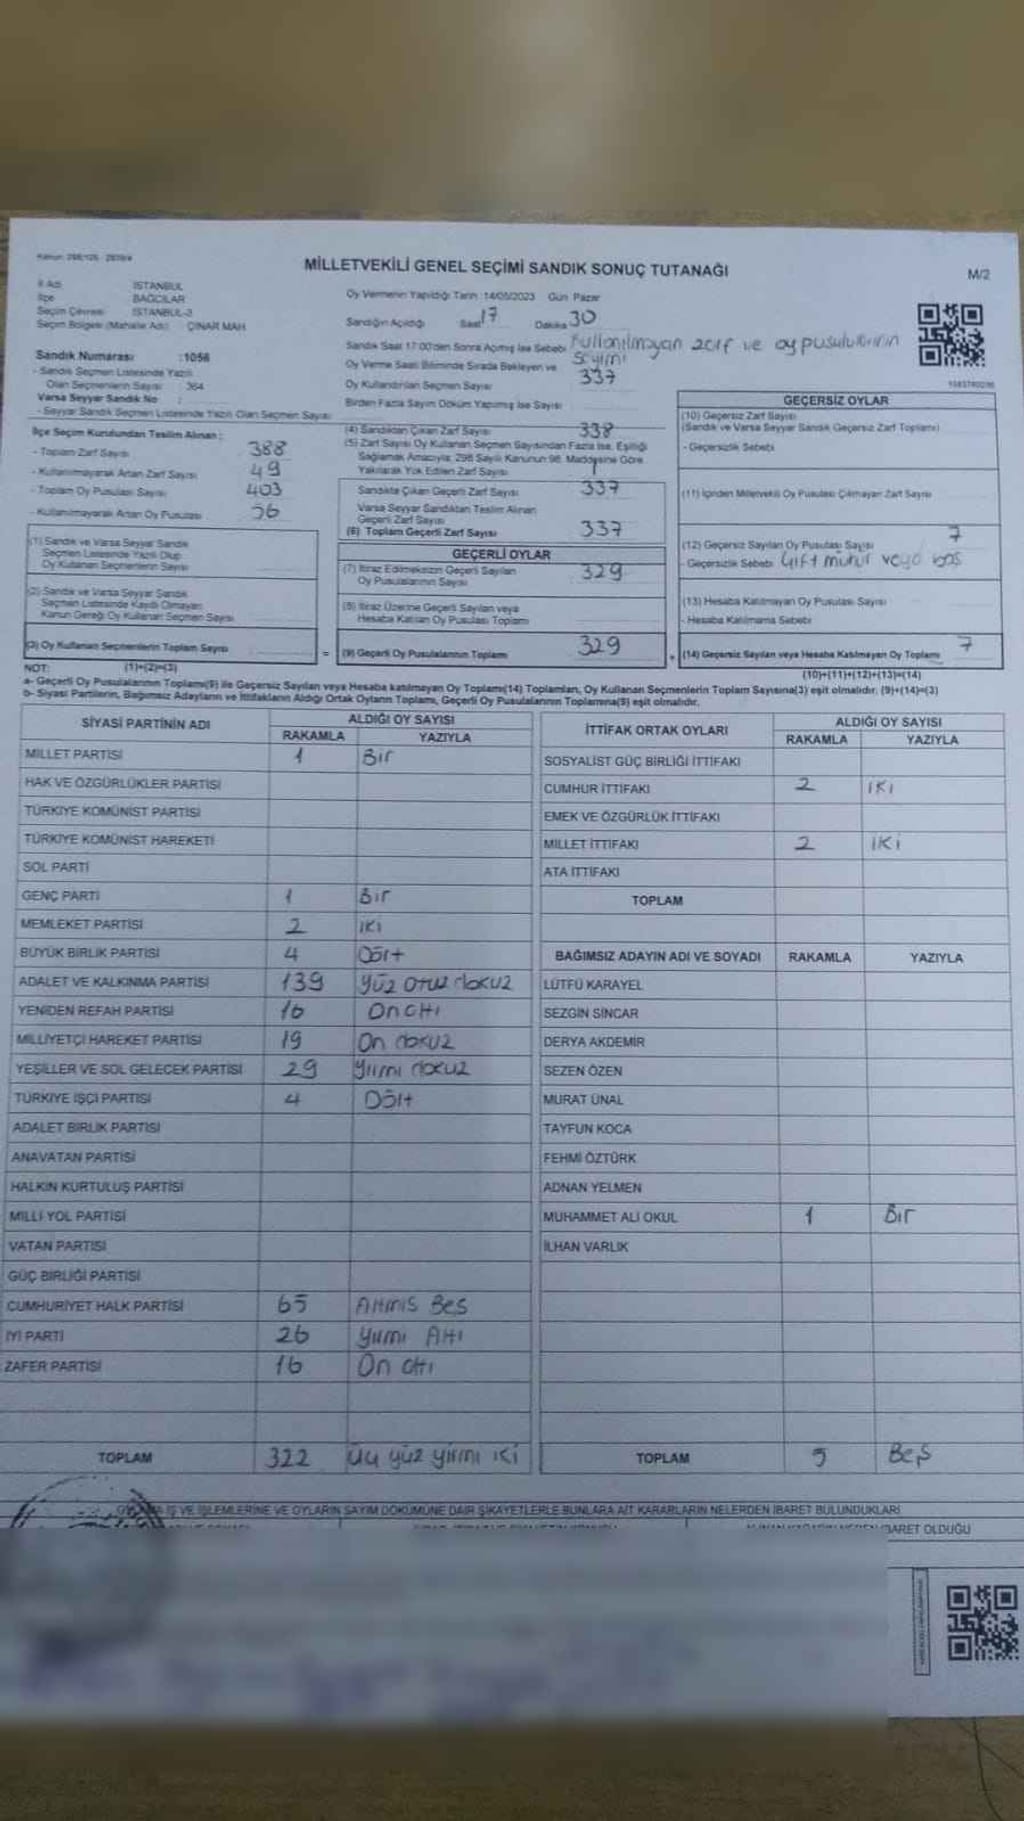 MİLLETVEKİLİ GENEL SEÇİMİ SANDIK SONUÇ TUTANAĞI
M/2
İl Adı : İSTANBUL
İlçe : BAĞCILAR
Seçim Çevresi : İSTANBUL-3
Seçim Bölgesi (Mahalle Adı) : ÇINAR MAH
Sandık Numarası :1056
- Sandık Seçmen Listesinde Yazılı
Olan Seçmenlerin Sayısı : 364
Varsa Seyyar Sandık No :
- Seyyar Sandık Seçmen Listesinde Yazılı Olan Seçmen Sayısı
Oy Vermenin Yapıldığı Tarih :14/05/2023 Gün: Pazar
Sandığın Açıldığı Saat 17 Dakika 30
Sandık Saat 17:00'den Sonra Açılmış İse Sebebi Kullanılmayan zarf ve oy pusulularının
Sayımı
Oy Verme Saati Bitiminde Sırada Bekleyen ve
Oy Kullandırılan Seçmen Sayısı 337
Birden Fazla Sayım Döküm Yapılmış İse Sayısı
İlçe Seçim Kurulundan Teslim Alınan :
- Toplam Zarf Sayısı 388
- Kullanılmayarak Artan Zarf Sayısı 49
- Toplam Oy Pusulası Sayısı 403
- Kullanılmayarak Artan Oy Pusulası
(1) Sandık ve Varsa Seyyar Sandık
Seçmen Listesinde Yazılı Olup
Oy Kullanan Seçmenlerin Sayısı
(2) Sandık ve Varsa Seyyar Sandık
Seçmen Listesinde Kayıtlı Olmayan
Kanun Gereği Oy Kullanan Seçmen Sayısı
(3) Oy Kullanan Seçmenlerin Toplam Sayısı
(1)+(2)=(3)
(4) Sandıktan Çıkan Zarf Sayısı 338
(5) Zarf Sayısı Oy Kullanan Seçmen Sayısından Fazla İse, Eşitliği
Sağlamak Amacıyla; 298 Sayılı Kanunun 98. Maddesine Göre
Yakılarak Yok Edilen Zarf Sayısı 1
Sandıkta Çıkan Geçerli Zarf Sayısı 337
Varsa Seyyar Sandıktan Teslim Alınan
Geçerli Zarf Sayısı
(6) Toplam Geçerli Zarf Sayısı 337
GEÇERLİ OYLAR
(7) İtiraz Edilmeksizin Geçerli Sayılan
Oy Pusulalarının Sayısı 329
(8) İtiraz Üzerine Geçerli Sayılan veya
Hesaba Katılan Oy Pusulası Toplamı
(9) Geçerli Oy Pusulalarının Toplamı 329
GEÇERSİZ OYLAR
(10) Geçersiz Zarf Sayısı
(Sandık ve Varsa Seyyar Sandık Geçersiz Zarf Toplamı)
- Geçersizlik Sebebi
(11) İçinden Milletvekili Oy Pusulası Çıkmayan Zarf Sayısı
(12) Geçersiz Sayılan Oy Pusulası Sayısı 7
- Geçersizlik Sebebi Çift mühür veya boş
(13) Hesaba Katılmayan Oy Pusulası Sayısı
- Hesaba Katılmama Sebebi
(14) Geçersiz Sayılan veya Hesaba Katılmayan Oy Toplamı 7
(10)+(11)+(12)+(13)=(14)
NOT:
a- Geçerli Oy Pusulalarının Toplamı(9) ile Geçersiz Sayılan veya Hesaba katılmayan Oy Toplamı(14) Toplamları, Oy Kullanan Seçmenlerin Toplam Sayısına(3) eşit olmalıdır. (9)+(14)=(3)
b- Siyasi Partilerin, Bağımsız Adayların ve İttifakların Aldığı Ortak Oyların Toplamı, Geçerli Oy Pusulalarının Toplamına(9) eşit olmalıdır.
SİYASİ PARTİNİN ADI ALDIĞI OY SAYISI
RAKAMLA YAZIYLA
MİLLET PARTİSİ 1 Bir
HAK VE ÖZGÜRLÜKLER PARTİSİ
TÜRKİYE KOMÜNİST PARTİSİ
TÜRKİYE KOMÜNİST HAREKETİ
SOL PARTİ
GENÇ PARTİ 1 Bir
MEMLEKET PARTİSİ 2 iki
BÜYÜK BİRLİK PARTİSİ 4 Dört
ADALET VE KALKINMA PARTİSİ 139 Yüz otuz dokuz
YENİDEN REFAH PARTİSİ 16 On altı
MİLLİYETÇİ HAREKET PARTİSİ 19 On dokuz
YEŞİLLER VE SOL GELECEK PARTİSİ 29 Yirmi dokuz
TÜRKİYE İŞÇİ PARTİSİ 4 Dört
ADALET BİRLİK PARTİSİ
ANAVATAN PARTİSİ
HALKIN KURTULUŞ PARTİSİ
MİLLİ YOL PARTİSİ
VATAN PARTİSİ
GÜÇ BİRLİĞİ PARTİSİ
CUMHURİYET HALK PARTİSİ 65 Altmış Beş
İYİ PARTİ 26 Yirmi Altı
ZAFER PARTİSİ 16 On altı
TOPLAM 322 üç yüz yirmi iki
İTTİFAK ORTAK OYLARI ALDIĞI OY SAYISI
RAKAMLA YAZIYLA
SOSYALİST GÜÇ BİRLİĞİ İTTİFAKI
CUMHUR İTTİFAKI 2 iki
EMEK VE ÖZGÜRLÜK İTTİFAKI
MİLLET İTTİFAKI 2 iki
ATA İTTİFAKI
TOPLAM
BAĞIMSIZ ADAYIN ADI VE SOYADI RAKAMLA YAZIYLA
LÜTFÜ KARAYEL
SEZGİN SİNCAR
DERYA AKDEMİR
SEZEN ÖZEN
MURAT ÜNAL
TAYFUN KOCA
FEHMİ ÖZTÜRK
ADNAN YELMEN
MUHAMMET ALİ OKUL 1 Bir
İLHAN VARLIK
TOPLAM 5 Beş
İŞ VE İŞLEMLERİNE VE OYLARIN SAYIM DÖKÜMÜNE DAİR ŞİKAYETLERLE BUNLARA AİT KARARLARIN NELERDEN İBARET BULUNDUKLARI
İBARET OLDUĞU